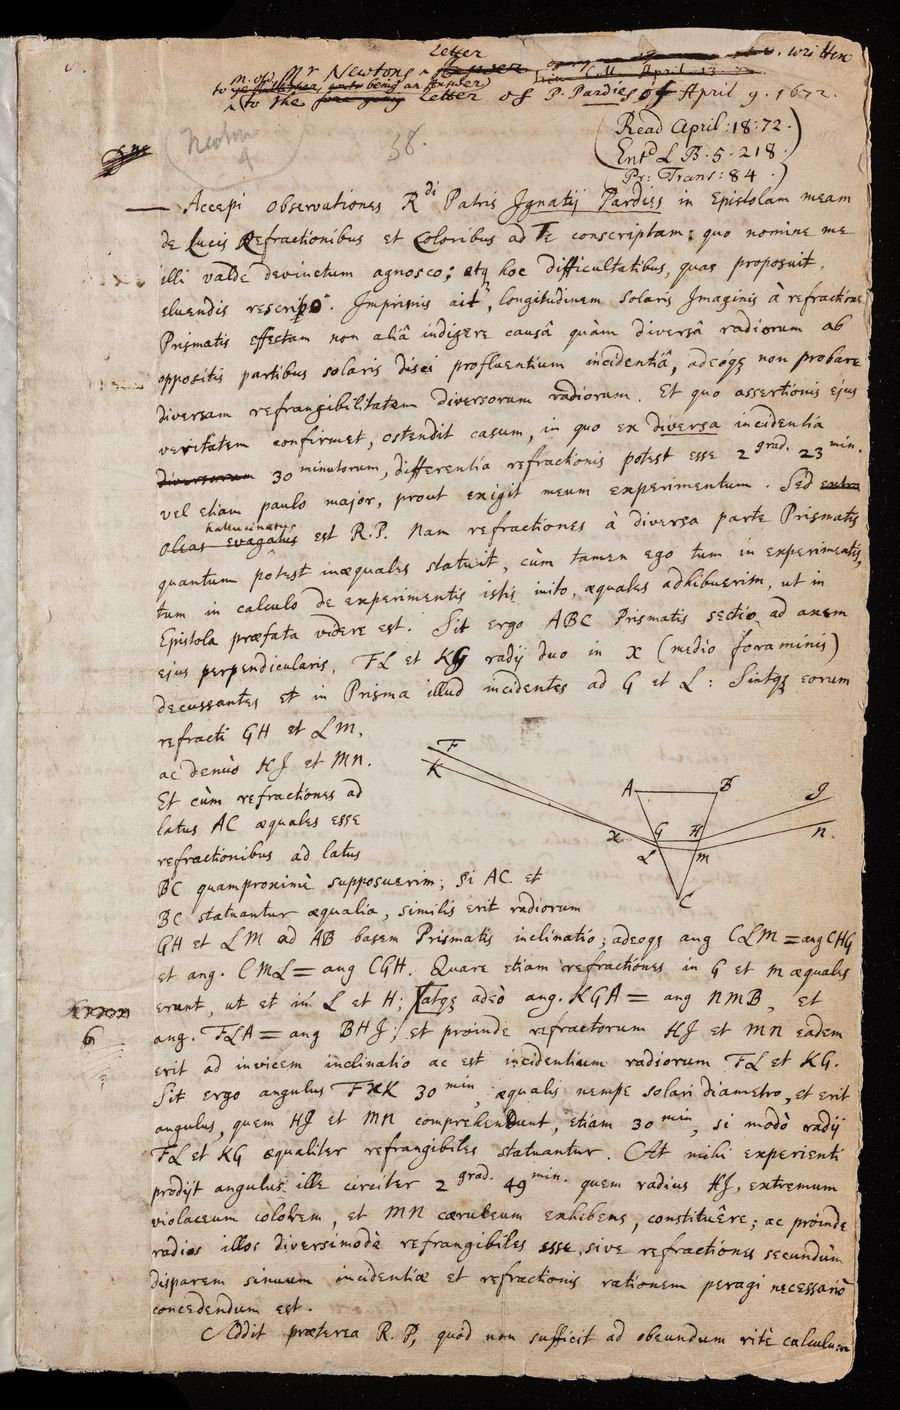 Letter
Mr Newtons Answer written
to the being an Answer April 13.
to the fore going Letter of P. Pardies of April 9. 1672.
(Read April: 18: 72.
Entd L B. 5. 218.
Pr: Trans: 84.)
Newton
4
38.
— Accepi observationes Rdi Patris Ignatij Pardies in Epistolam meam
de Lucis Refractionibus et Coloribus ad Te conscriptam: quo nomine me
illi valde devinctum agnosco; atq hoc difficultatibus, quas proposuit,
eluendis rescripo. Imprimis ait, longitudinem solaris Imaginis à refractione
Prismatis effectam non aliâ indigere causâ quàm diversâ radiorum ab
oppositis partibus solaris disci profluentium incidentiâ, adeóqꝫ non probare
diversam refrangibilitatem diversorum radiorum. Et quo assertionis ejus
veritatem confirmet, ostendit casum, in quo ex diversa incidentia
diversorum 30 minutorum, differentia refractionis potest esse 2 grad. 23 min.
vel etiam paulo major, prout exigit meum experimentum. Sed extra
hallucinatus
oleas evagatus est R.P. Nam refractiones à diversa parte Prismatis
quantum potest inæquales statuit, cùm tamen ego tum in experimentis,
tum in calculo de experimentis istis inito, æquales adhibuerim, ut in
Epistola præfata videre est. Sit ergo ABC Prismatis sectio ad axem
ejus perpendicularis, FL et KG radij duo in x (medio foraminis)
decussantes et in Prisma illud incidentes ad G et L: Sintqꝫ eorum
refracti GH et LM,
ac denuò HI et MN.
Et cùm refractiones ad
latus AC æquales esse
refractionibus ad latus
BC quamproximè supposuerim; si AC. et
BC statuantur æqualia, similis erit radiorum
F
K
A B
x G H
L M
C
I
N.
GH et LM ad AB basem Prismatis inclinatio; adeoqꝫ ang CLM = ang CHG
et ang. CML = ang CGH. Quare etiam refractiones in G et M æquales
erunt, ut et in L et H; atqꝫ adeò ang. KGA = ang NMB, et
6
ang. FLA = ang BHI; et proinde refractorum HI et MN eadem
erit ad invicem inclinatio ac est incidentium radiorum FL et KG.
Sit ergo angulus FxK 30 min, æqualis nempe solari diametro, et erit
angulus, quem HI et MN comprehendunt, etiam 30 min, si modò radij
FL et KG æqualiter refrangibiles statuantur. At mihi experienti
prodijt angulus ille circiter 2 grad. 49 min. quem radius HI, extremum
violaceum colorem, et MN cæruleum exhibens, constituêre; ac proinde
radios illos diversimodè refrangibiles esse, sive refractiones secundùm
disparem sinuum incidentiæ et refractionis rationem peragi necessariò
concedendum est.
Addit præterea R. P, quòd non sufficit ad obeundum ritè calculum